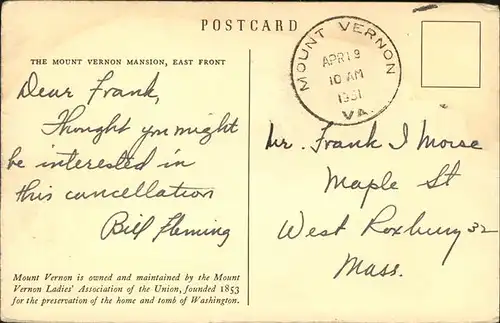 POSTCARD
THE MOUNT VERNON MANSION, EAST FRONT
MOUNT VERNON
APR 19
10 AM
1951
VA.
Dear Frank,
Thought you might
be interested in
this cancellation
Bill Fleming
Mr. Frank I Morse
Maple St
West Roxbury 32
Mass.
Mount Vernon is owned and maintained by the Mount
Vernon Ladies' Association of the Union, founded 1853
for the preservation of the home and tomb of Washington.